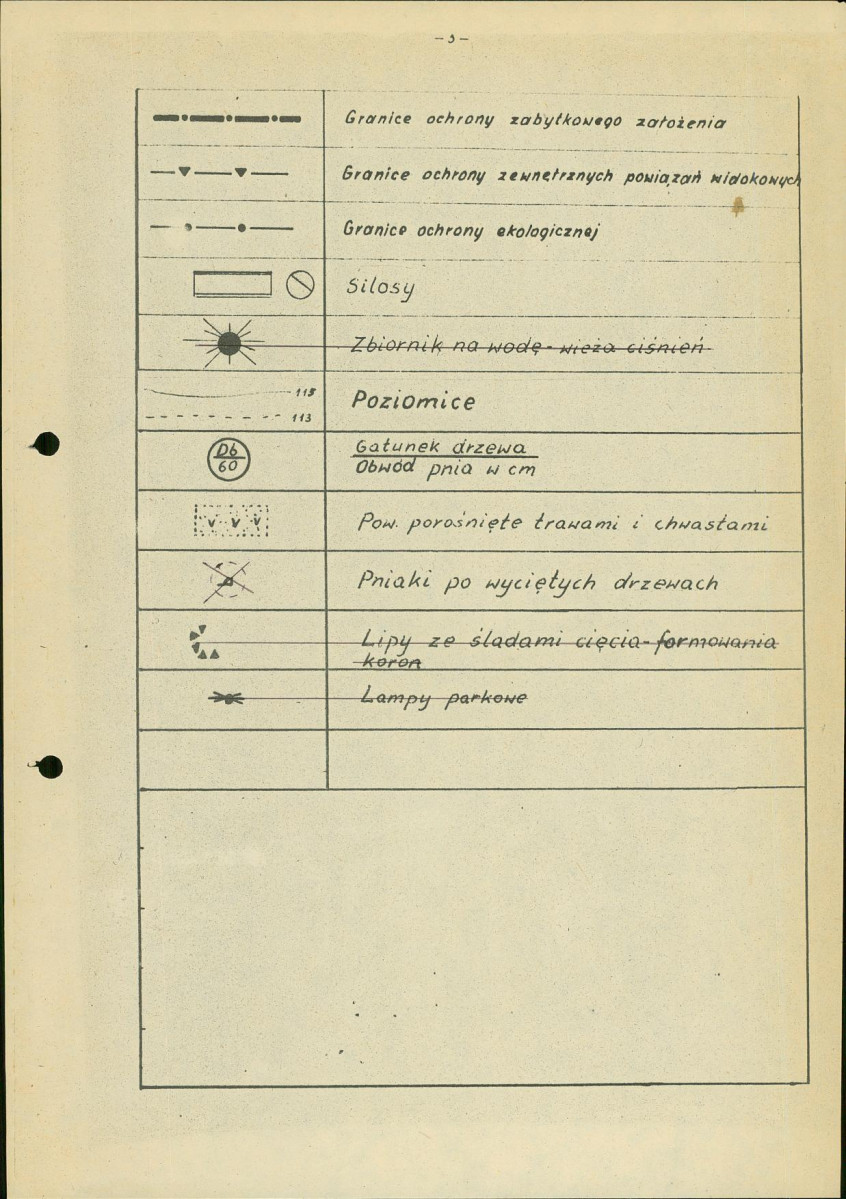 - 3 -
Granice ochrony zabytkowego założenia
Granice ochrony zewnętrznych powiązań widokowych
Granice ochrony ekologicznej
Silosy
Zbiornik na wodę - wieża ciśnień
115
Poziomice
113
Db
60
Gatunek drzewa
Obwód pnia w cm
v v v
Pow. porośnięte trawami i chwastami
Pniaki po wyciętych drzewach
Lipy ze śladami cięcia - formowania
koron
Lampy parkowe